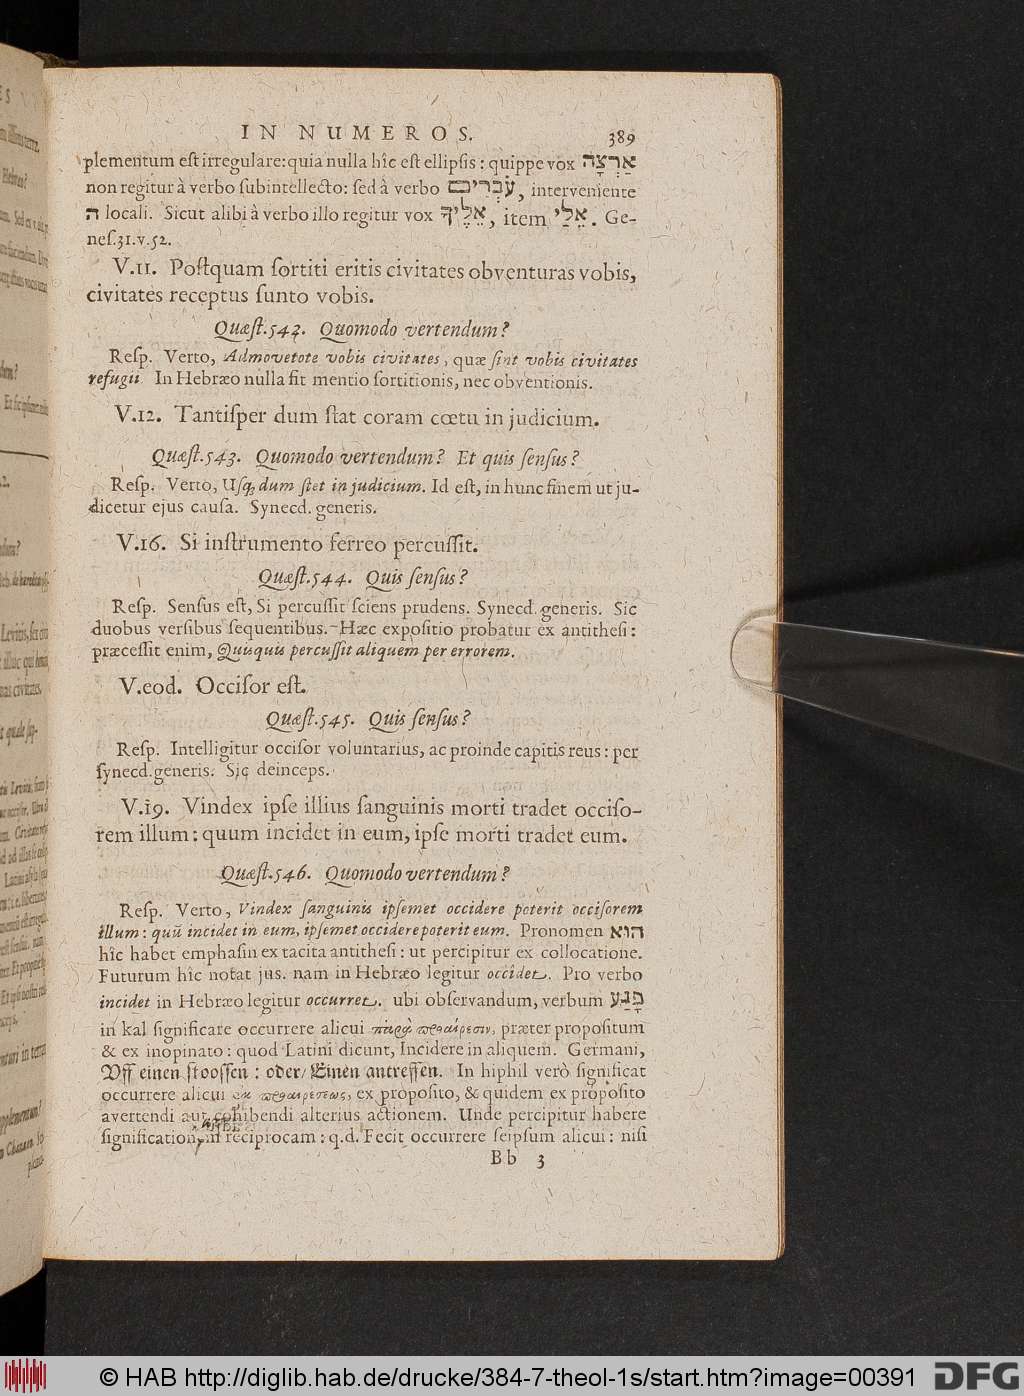 IN NUMEROS. 389
plementum est irregulare: quia nulla hîc est ellipsis: quippe vox אַרְצָה
non regitur à verbo subintellecto: sed à verbo עֹבְרִים, interveniente
ה locali. Sicut alibi à verbo illo regitur vox אֵלֶיךָ, item אֵלַי. Ge-
nes. 31. v. 52.
V. 11. Postquam sortiti eritis civitates obventuras vobis,
civitates receptus sunto vobis.
Quæst. 542. Quomodo vertendum?
Resp. Verto, Admovetote vobis civitates, quæ sint vobis civitates
refugii. In Hebræo nulla fit mentio sortitionis, nec obventionis.
V. 12. Tantisper dum stat coram cœtu in judicium.
Quæst. 543. Quomodo vertendum? Et quis sensus?
Resp. Verto, Usq; dum stet in judicium. Id est, in hunc finem ut ju-
dicetur ejus causa. Synecd. generis.
V. 16. Si instrumento ferreo percussit.
Quæst. 544. Quis sensus?
Resp. Sensus est, Si percussit sciens prudens. Synecd. generis. Sic
duobus versibus sequentibus. Hæc expositio probatur ex antithesi:
præcessit enim, Quisquis percussit aliquem per errorem.
V. eod. Occisor est.
Quæst. 545. Quis sensus?
Resp. Intelligitur occisor voluntarius, ac proinde capitis reus: per
synecd. generis. Sic deinceps.
V. 19. Vindex ipse illius sanguinis morti tradet occiso-
rem illum: quum incidet in eum, ipse morti tradet eum.
Quæst. 546. Quomodo vertendum?
Resp. Verto, Vindex sanguinis ipsemet occidere poterit occisorem
illum: quũ incidet in eum, ipsemet occidere poterit eum. Pronomen הוּא
hîc habet emphasin ex tacita antithesi: ut percipitur ex collocatione.
Futurum hîc notat jus. nam in Hebræo legitur occidet. Pro verbo
incidet in Hebræo legitur occurret. ubi observandum, verbum פָּגַע
in kal significare occurrere alicui παρὰ προαίρεσιν, præter propositum
& ex inopinato: quod Latini dicunt, Incidere in aliquem. Germani,
Uff einen stoossen: oder/ Einen antreffen. In hiphil verò significat
occurrere alicui ἐκ προαιρέσεως, ex proposito, & quidem ex proposito
avertendi aut cohibendi alterius actionem. Unde percipitur habere
significationem reciprocam: q.d. Fecit occurrere seipsum alicui: nisi
Bb 3
© HAB http://diglib.hab.de/drucke/384-7-theol-1s/start.htm?image=00391
DFG